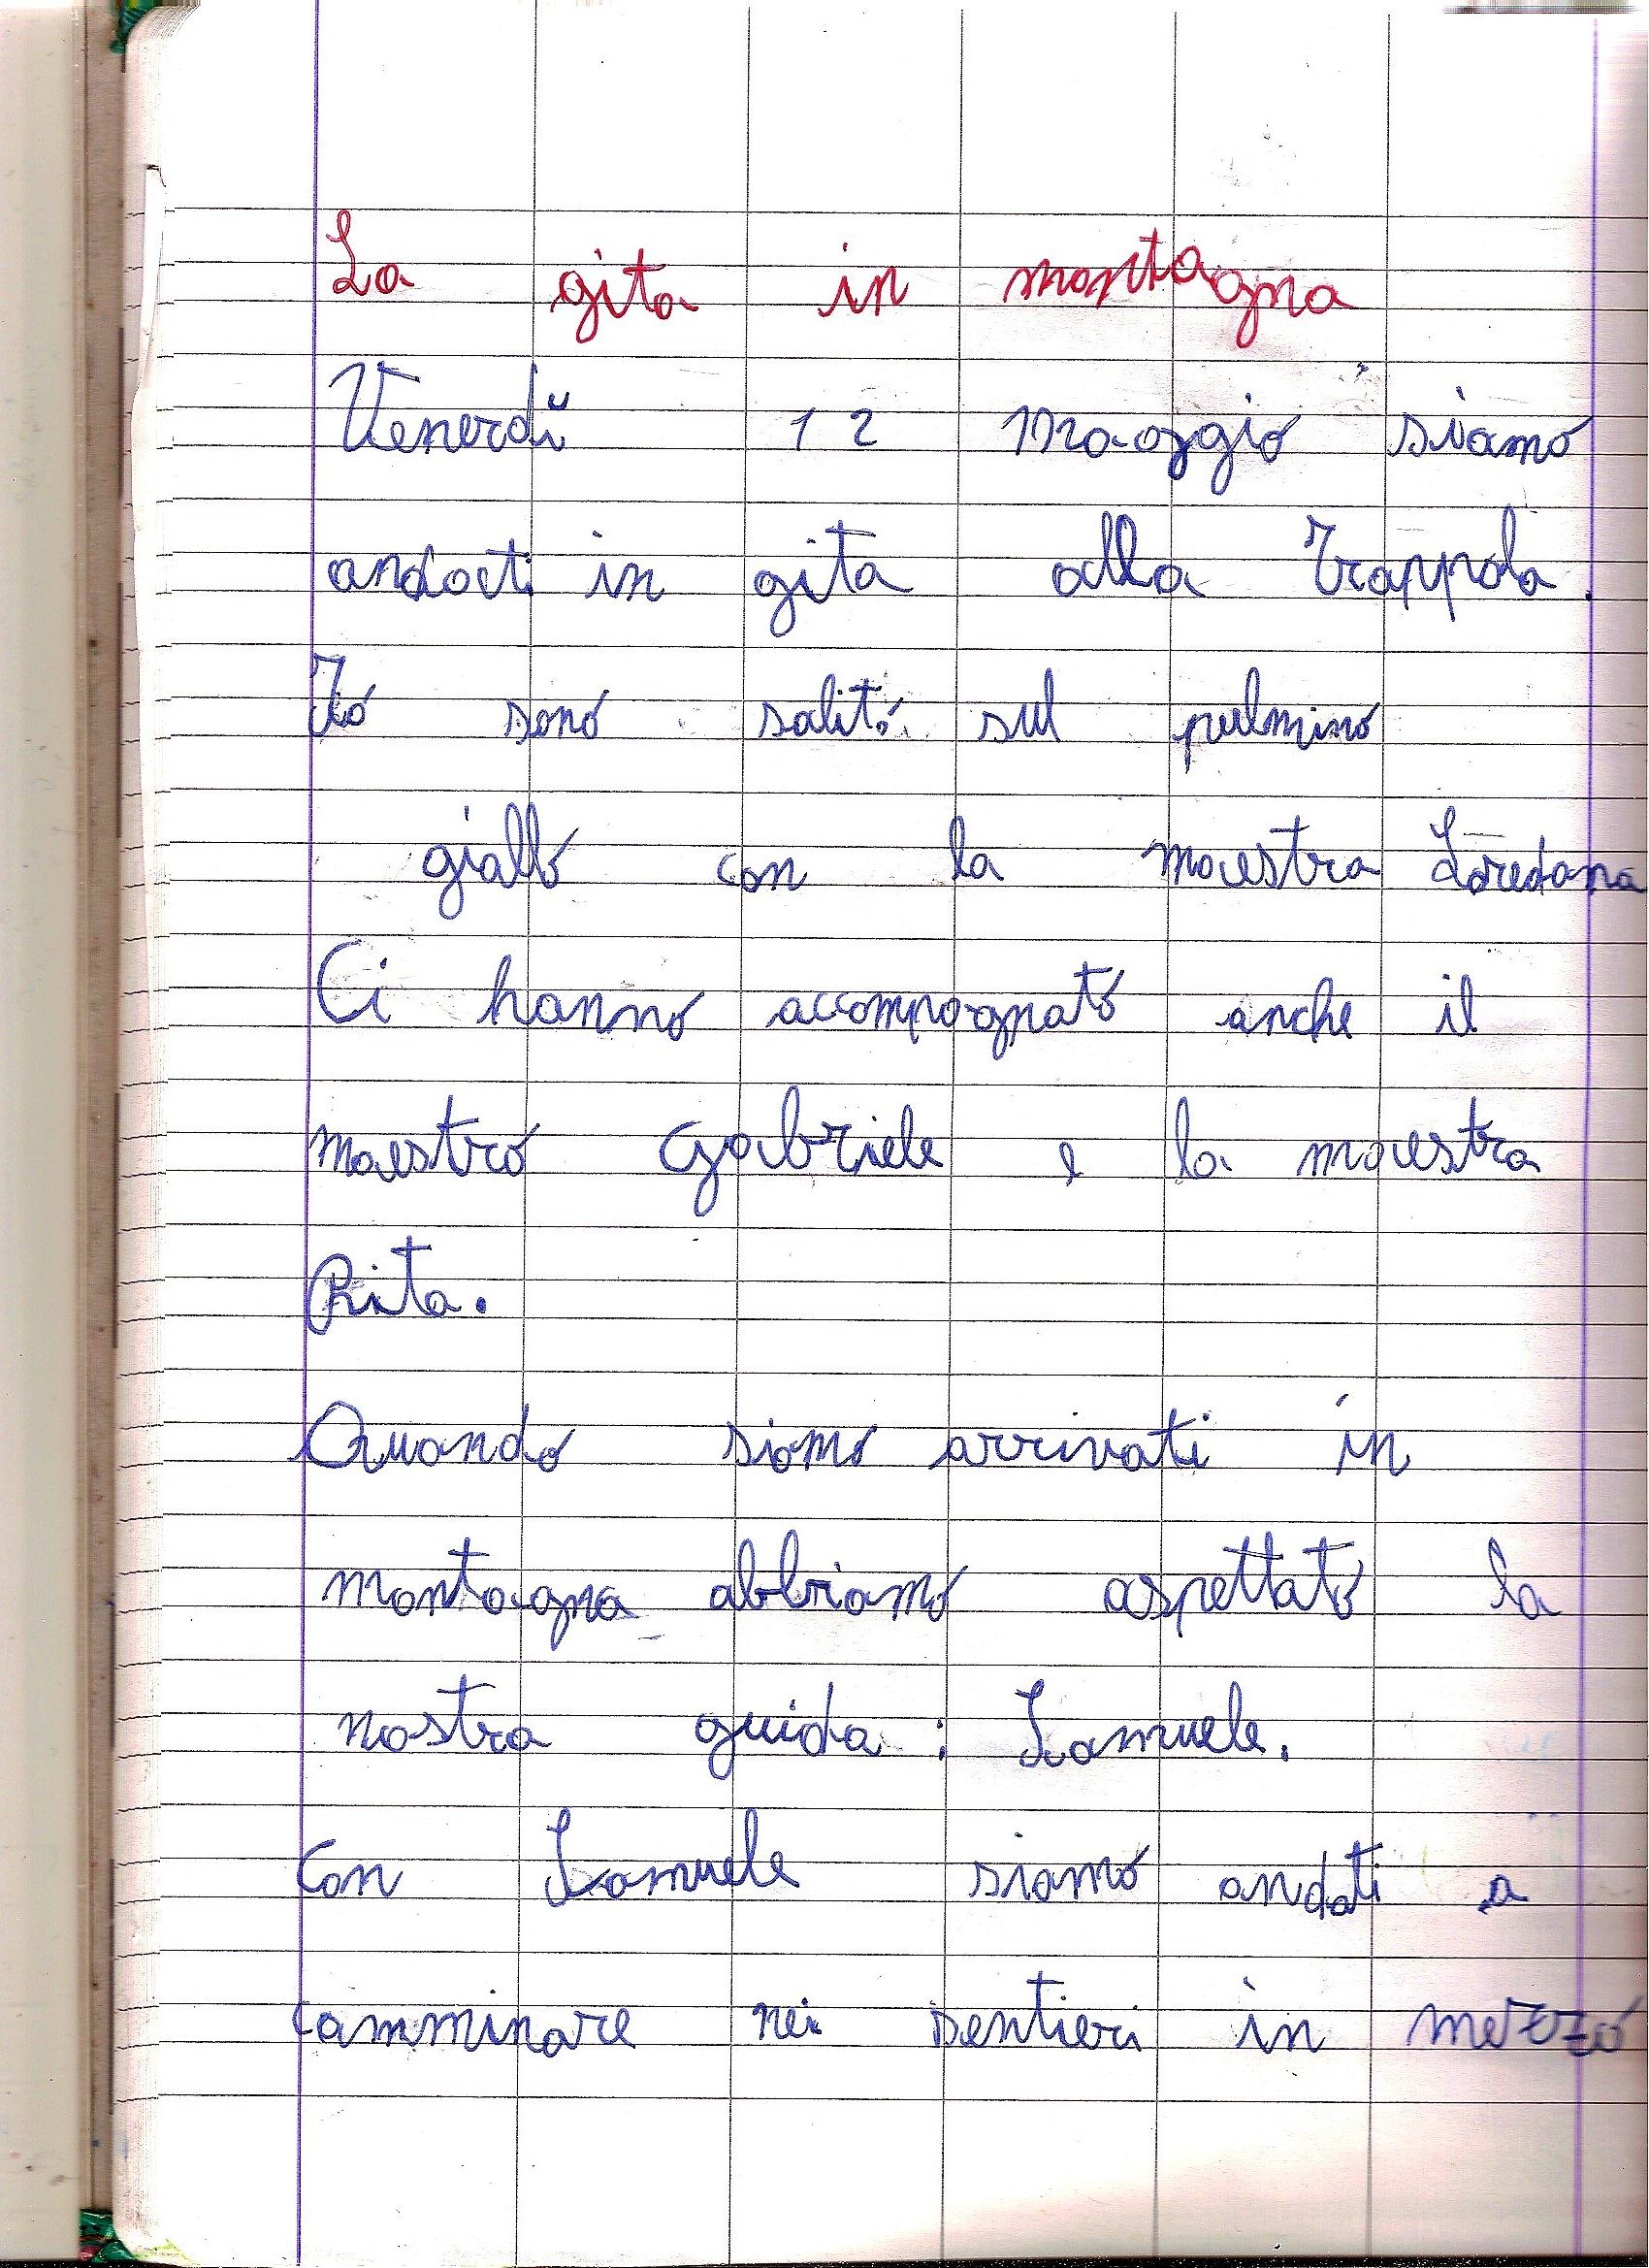 La gita in montagna
Venerdì 12 Maggio siamo
andati in gita alla Trappola.
Io sono salito sul pulmino
giallo con la maestra Loredana
Ci hanno accompagnato anche il
maestro Gabriele e la maestra
Rita.
Quando siamo arrivati in
montagna abbiamo aspettato la
nostra guida: Samuele.
Con Samuele siamo andati a
camminare nei sentieri in mezzo